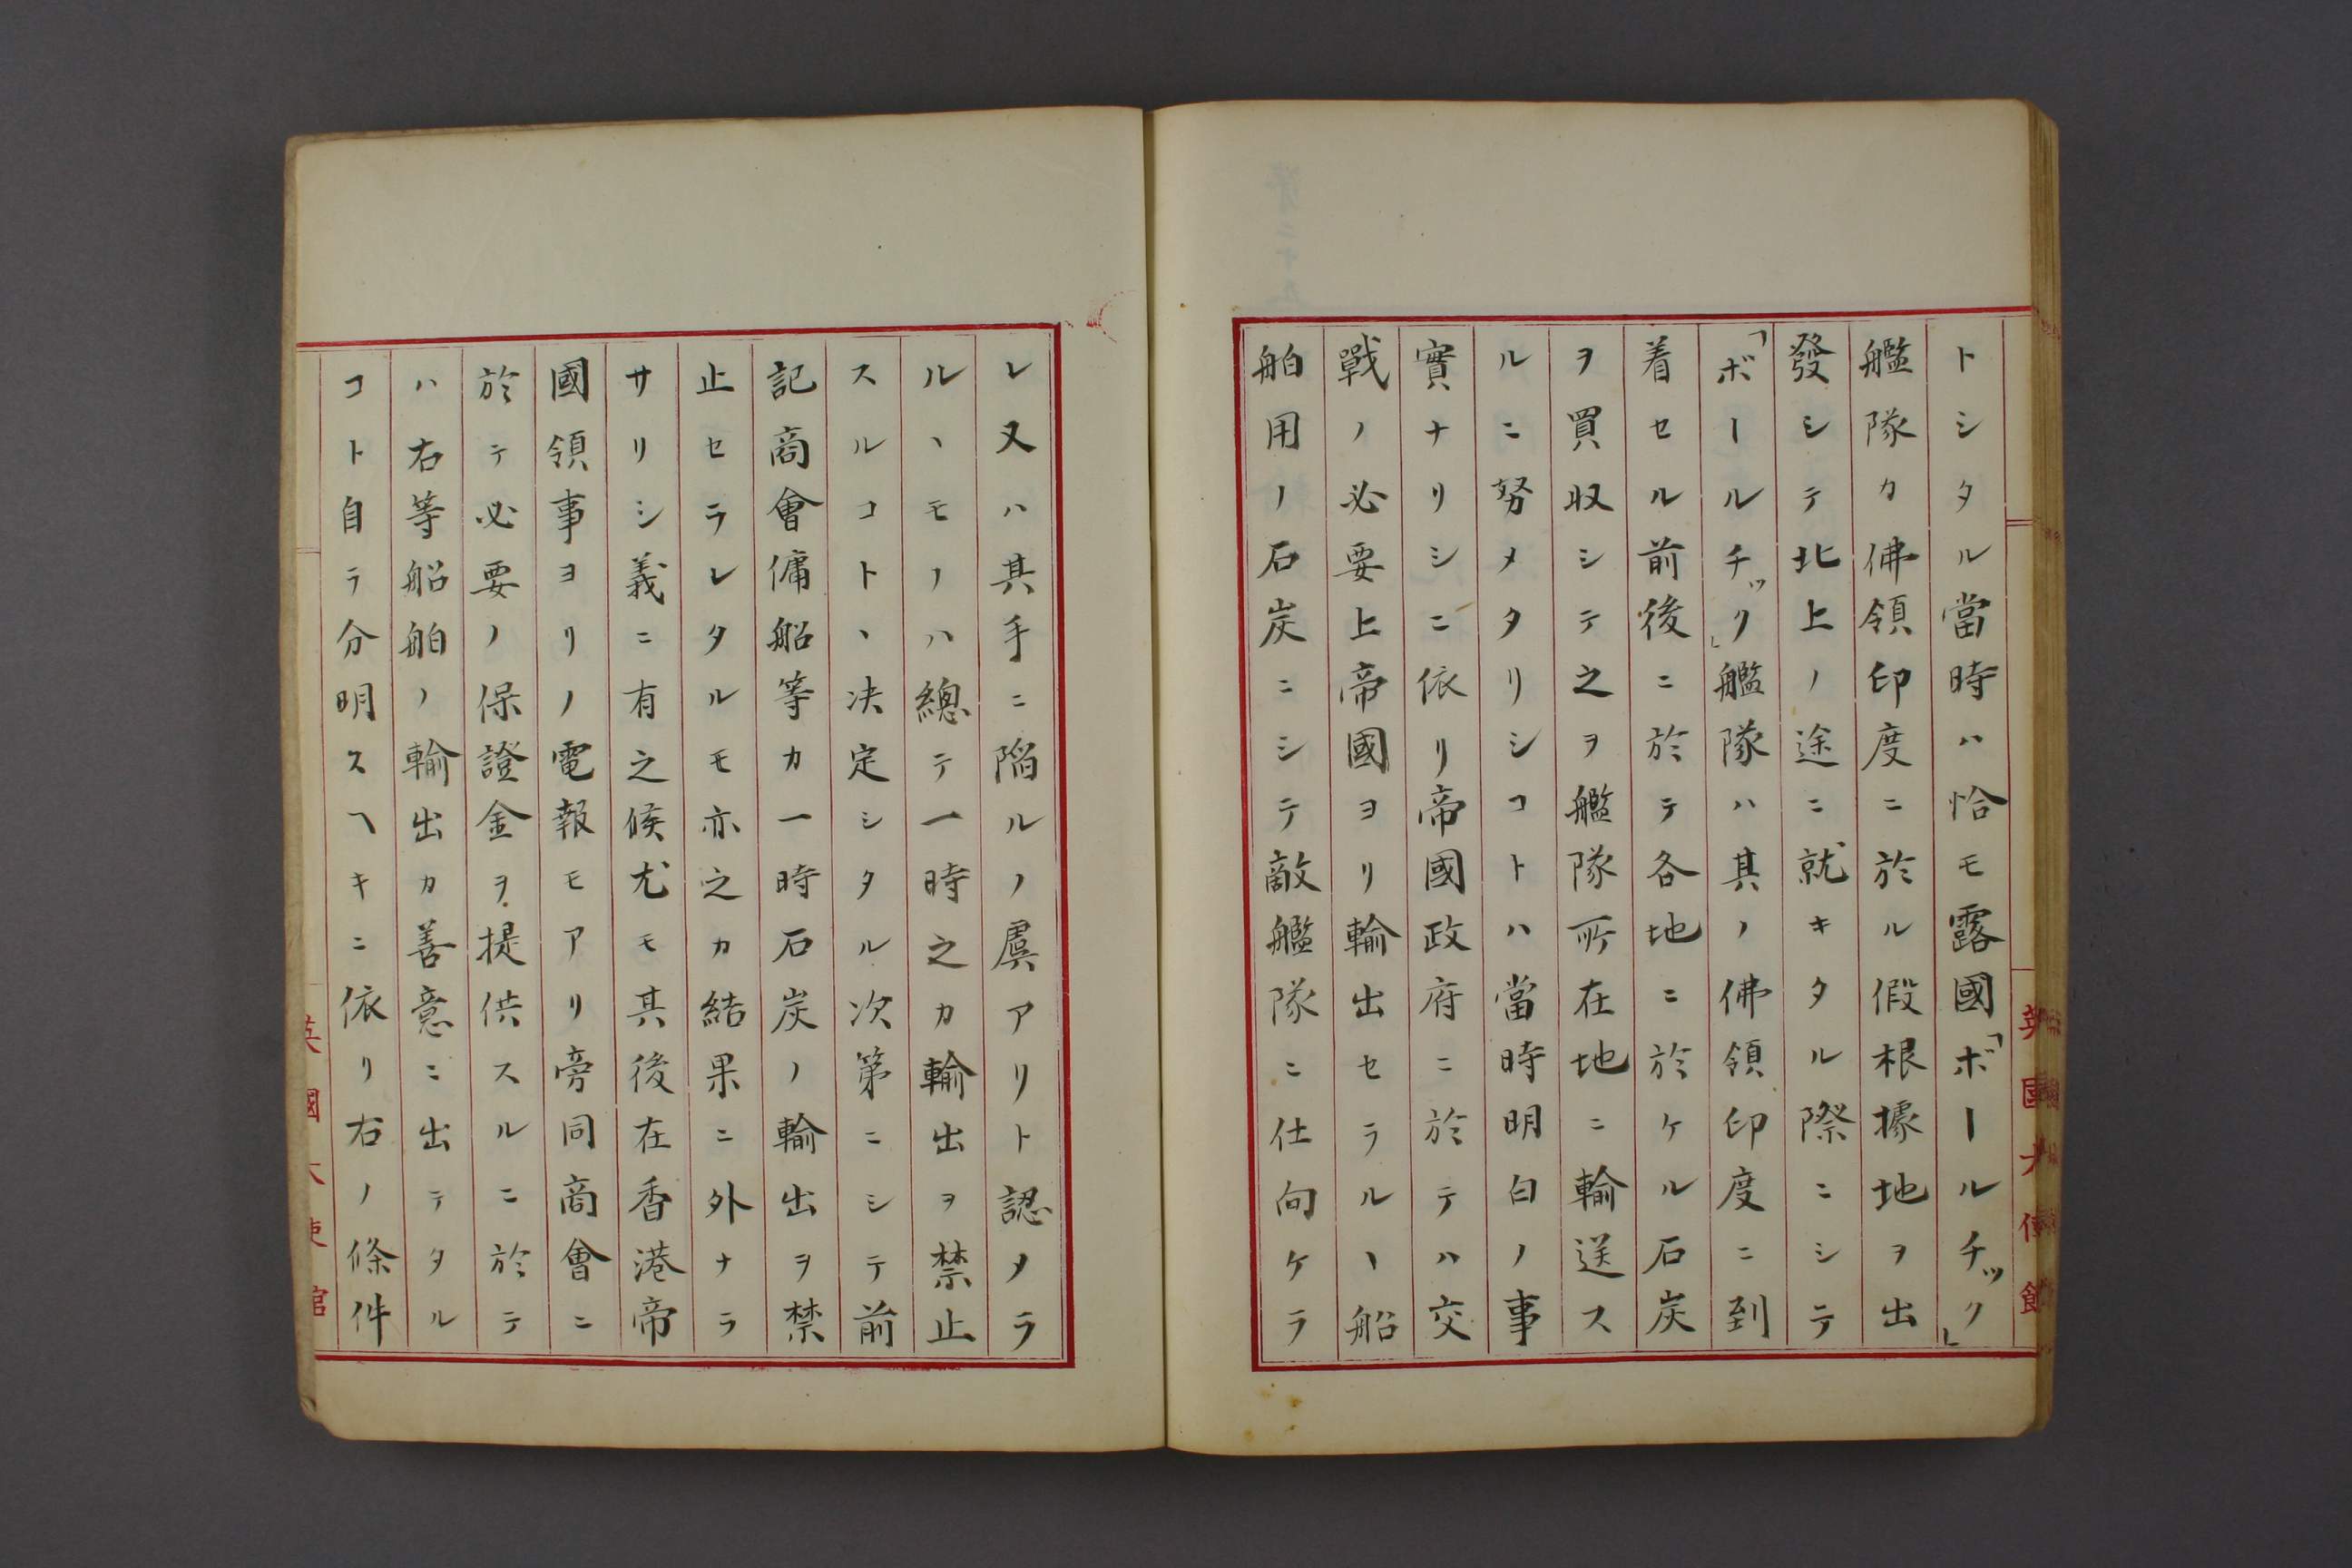 トシタル當時ハ恰モ露國「ボールチック」
艦隊カ佛領印度ニ於ル假根據地ヲ出
發シテ北上ノ途ニ就キタル際ニシテ
「ボールチック」艦隊ハ其ノ佛領印度ニ到
着セル前後ニ於テ各地ニ於ケル石炭
ヲ買収シテ之ヲ艦隊所在地ニ輸送ス
ルニ努メタリシコトハ當時明白ノ事
實ナリシニ依リ帝國政府ニ於テハ交
戰ノ必要上帝國ヨリ輸出セラルヽ船
舶用ノ石炭ニシテ敵艦隊ニ仕向ケラ
レ又ハ其手ニ陥ルノ虞アリト認メラ
ルヽモノハ總テ一時之カ輸出ヲ禁止
スルコトヽ决定シタル次第ニシテ前
記商會傭船等カ一時石炭ノ輸出ヲ禁
止セラレタルモ亦之カ結果ニ外ナラ
サリシ義ニ有之候尤モ其後在香港帝
國領事ヨリノ電報モアリ旁同商會ニ
於テ必要ノ保證金ヲ提供スルニ於テ
ハ右等船舶ノ輸出カ善意ニ出テタル
コト自ラ分明スヘキニ依リ右ノ條件
英國大使館